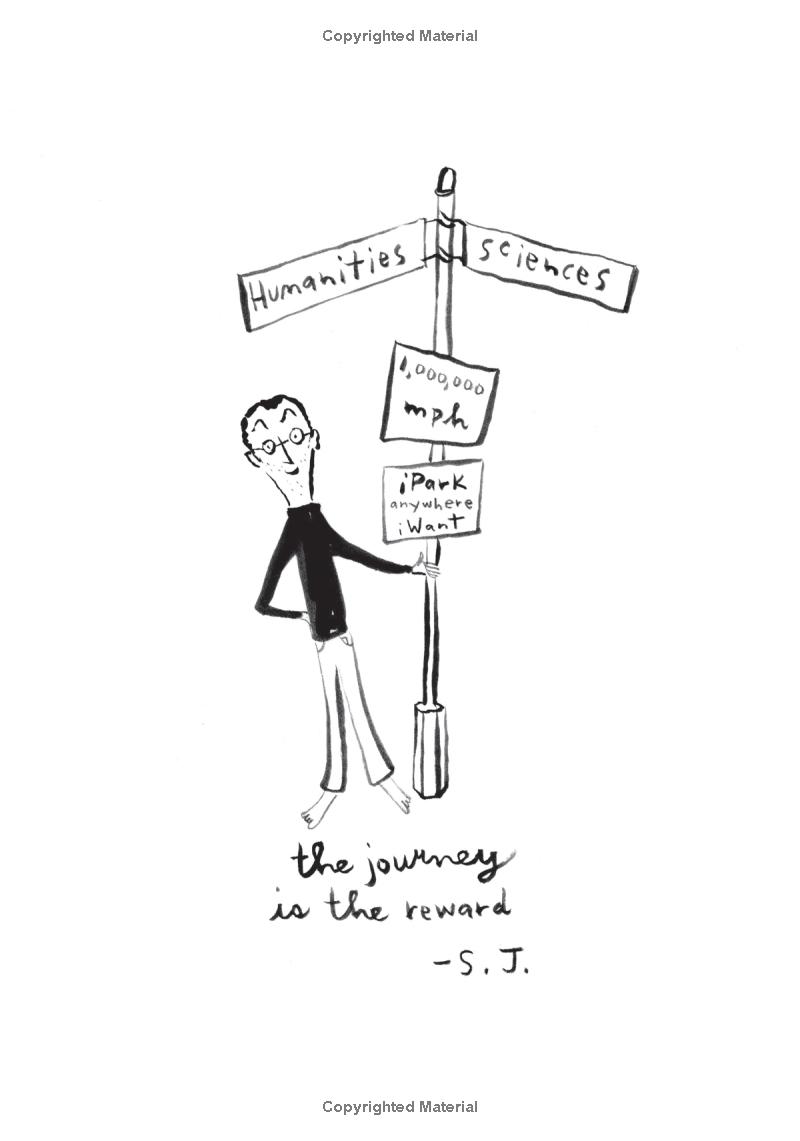 Copyrighted Material
Humanities
sciences
1,000,000
mph
iPark
anywhere
iWant
the journey
is the reward
-S. J.
Copyrighted Material